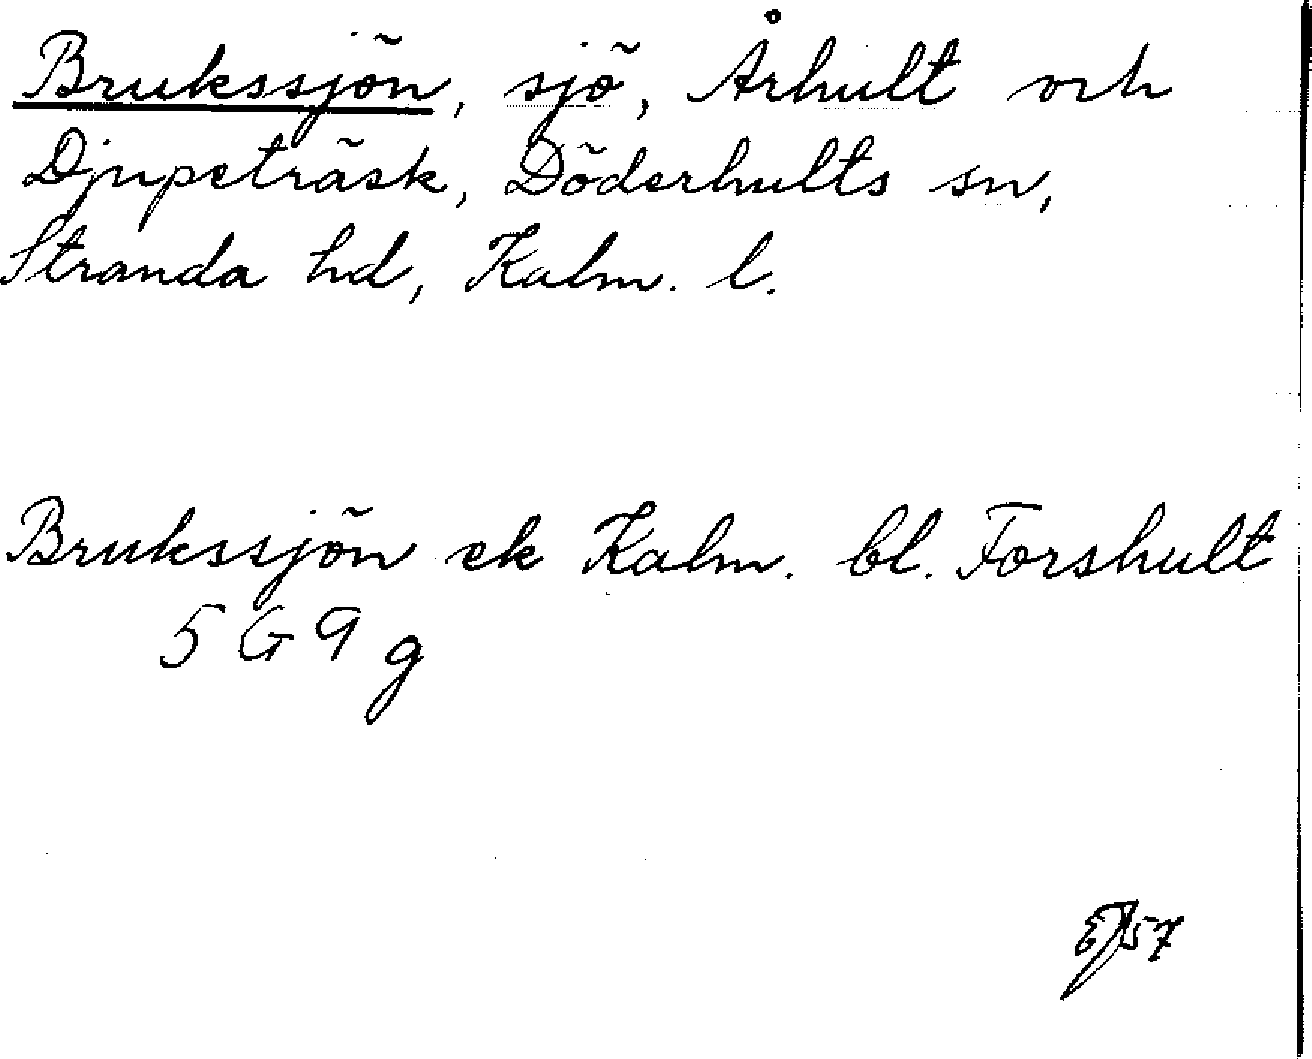 Brukssjön, sjö, Århult och
Djupeträsk, Döderhults sn,
Stranda hd, Kalm. l.
Brukssjön ek Kalm. bl. Forshult
5 G 9 g
57